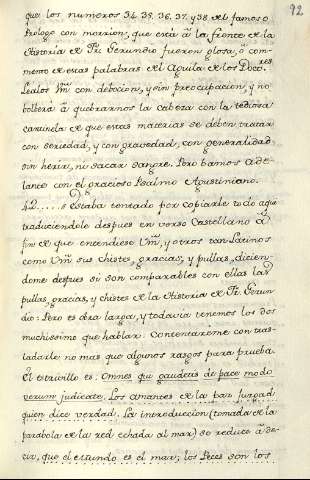 92
que los numeros 34. 35. 36. 37. y 38. del famoso
Prologo con morrion, que está â la frente de la
Historia de Fr. Gerundio fueron glosa, ô com-
mento de estas palabras del Aguila de los Doct.res
Lealos Vm. con debocion, y sin preocupacion, y no
bolberà â quebrarnos la cabeza con la tediosa
cantinela de que estas materias se deben tratar
con seriedad, y con gravedad, con generalidad
sin herir, ni sacar sangre. Pero bamos ade-
lante con el gracioso Psalmo Agustiniano.
42..... Estaba tentado por copiarle todo aqui
traduciendole despues en verso Castellano â
fin de que entendiese Vm. y otros tan Latinos
como Vm. sus chistes, gracias, y pullas, dicien-
dome despues si son comparables con ellas las
pullas, gracias, y chistes de la Historia de Fr. Gerun-
dio: Pero es obra larga, y todavia tenemos los dos
muchissimo que hablar. Contentareme con tras-
ladarle no mas que algunos rasgos para prueba.
El estrivillo es: Omnes qui gaudetis de pace modo
verum judicate. Los amantes de la paz juzgad
quien dice verdad. La introduccion (tomada de la
parabola de la red echada al mar) se reduce â de-
cir, que el Mundo es el mar; los Peces son los